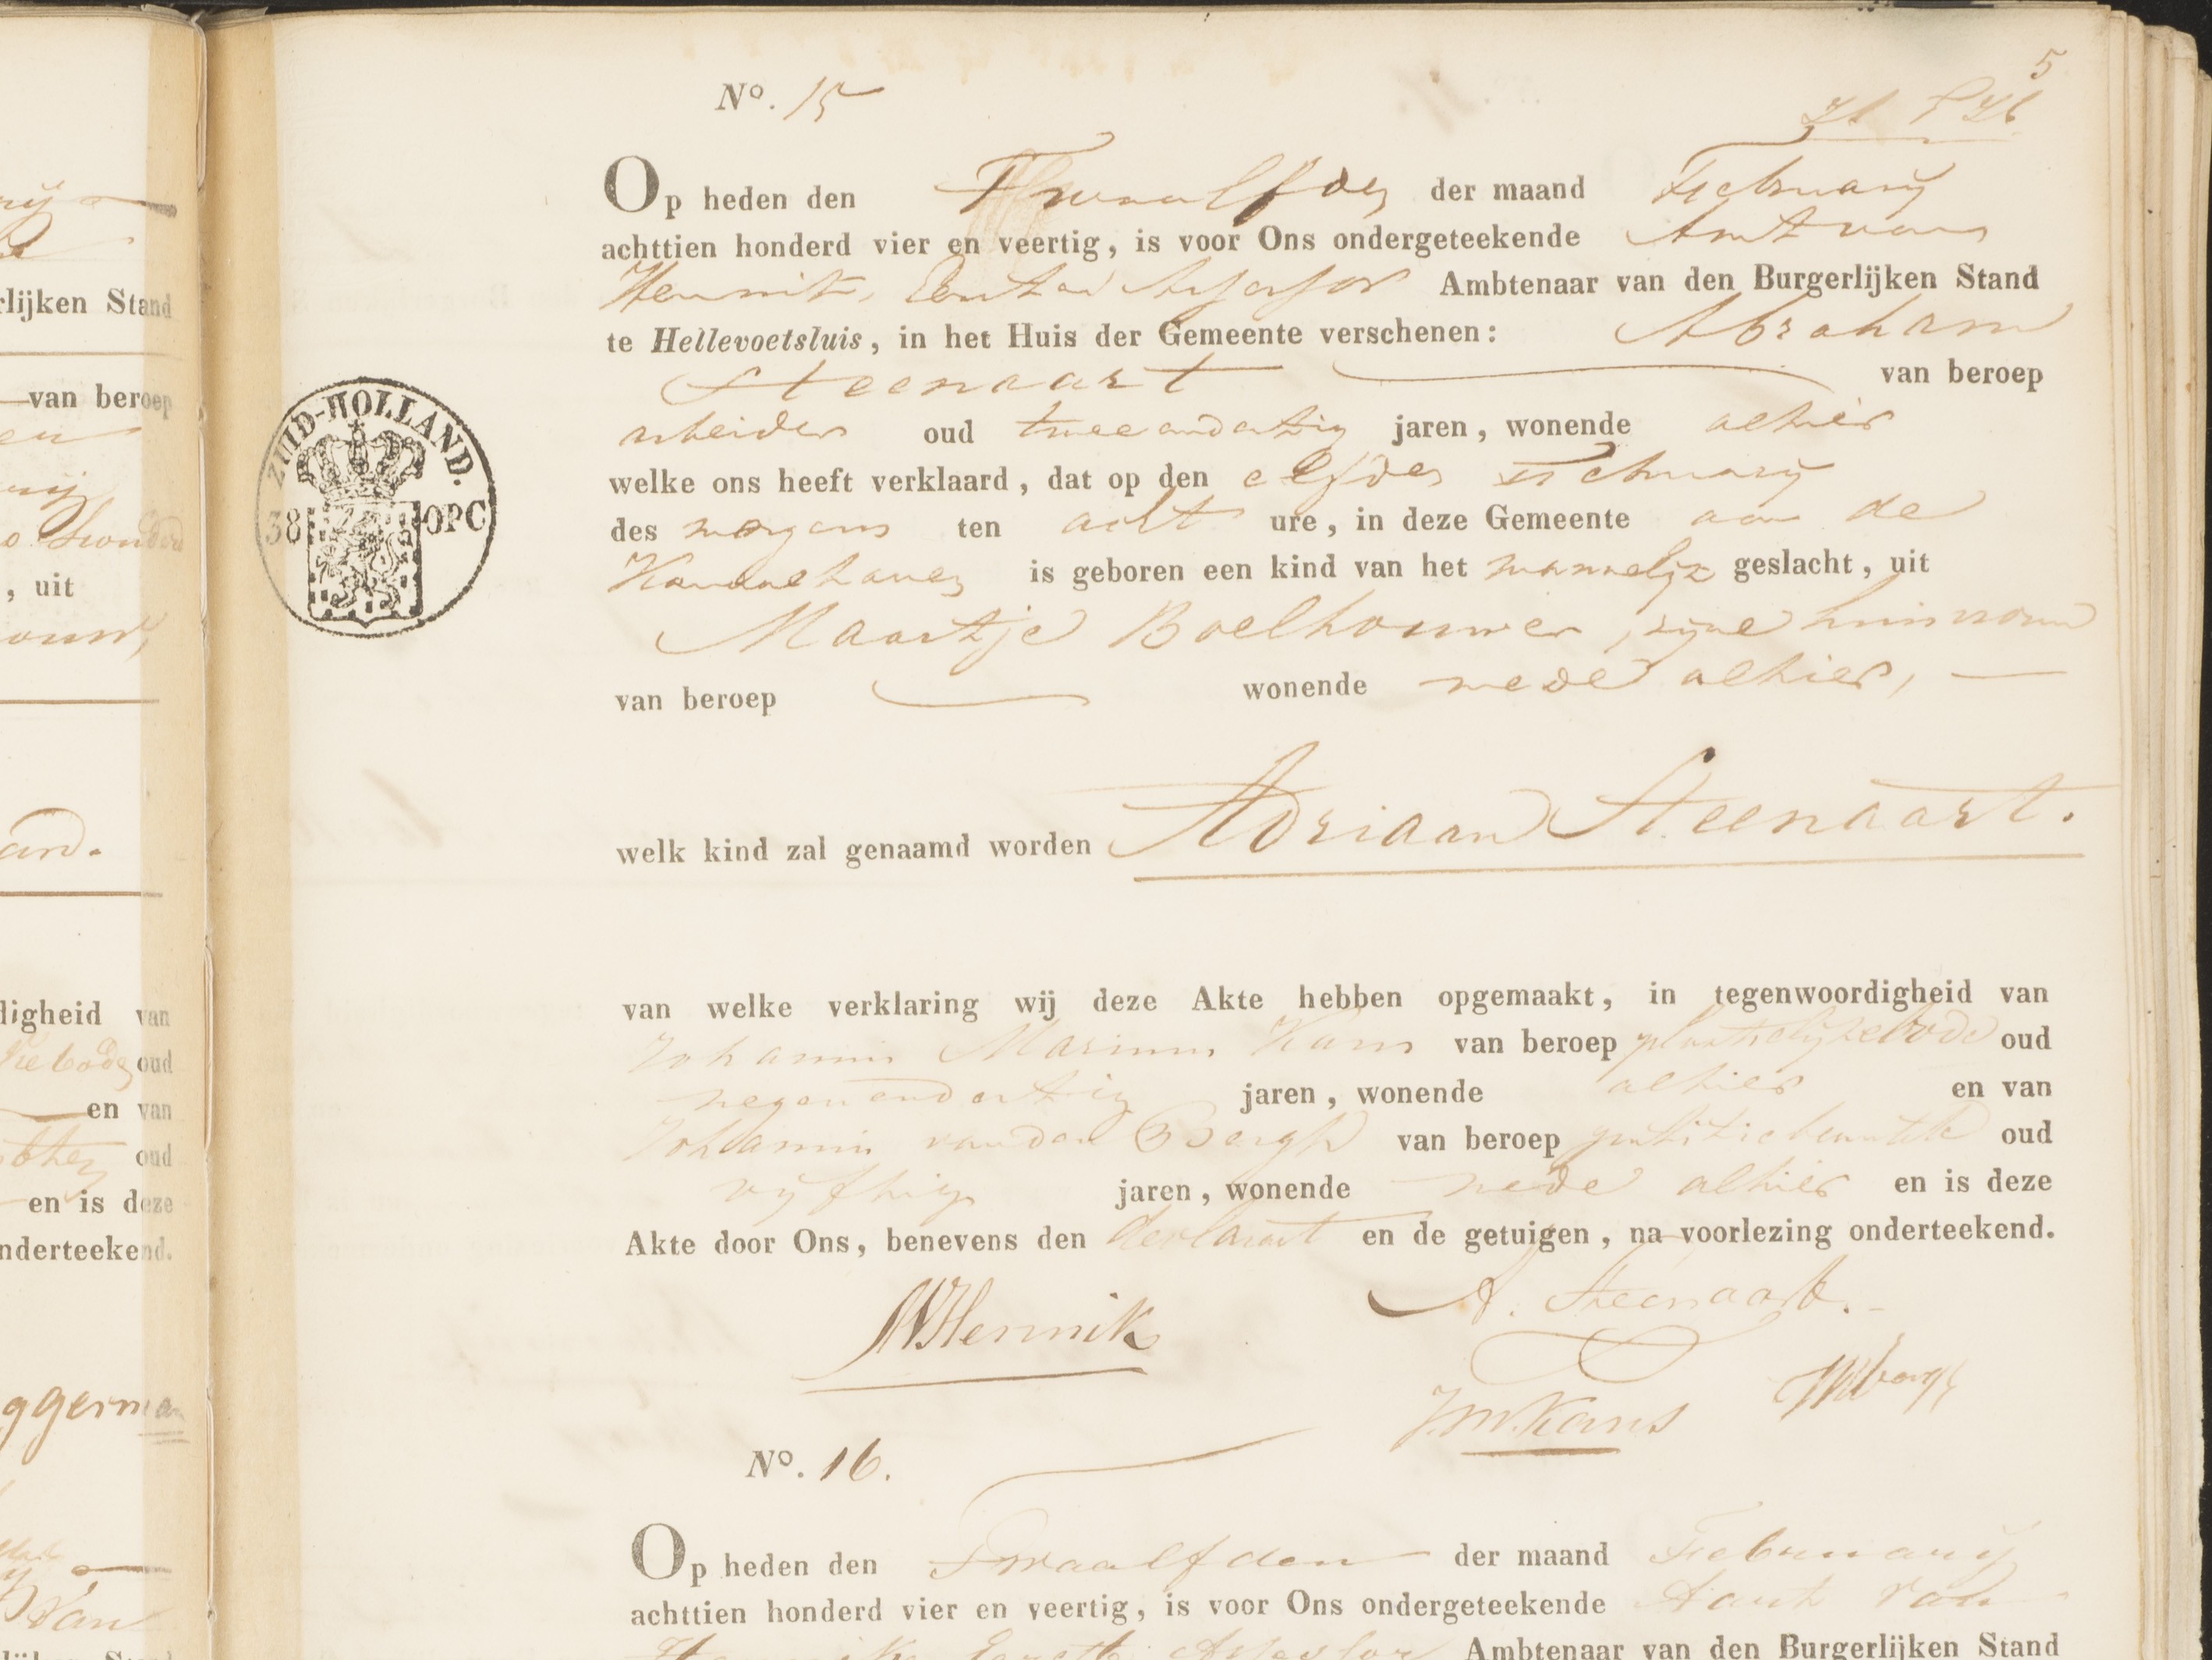 5
No. 15
Op heden den Twaalfden der maand February
achttien honderd vier en veertig, is voor Ons ondergeteekende van
Hennik, Eerste Assessor Ambtenaar van den Burgerlijken Stand
te Hellevoetsluis, in het Huis der Gemeente verschenen: Abraham
Steenaart van beroep
arbeider oud tweeendertig jaren, wonende alhier
welke ons heeft verklaard, dat op den elfden February
des morgens ten acht ure, in deze Gemeente aan de
is geboren een kind van het mannelijk geslacht, uit
Maartje Boelhouwer, zijne huisvrouw
van beroep wonende mede alhier,
welk kind zal genaamd worden Adriaan Steenaart.
van welke verklaring wij deze Akte hebben opgemaakt, in tegenwoordigheid van
Johannis Marinus Kans van beroep plaatselijkebode oud
negenendertig jaren, wonende alhier en van
Johannis van den Bergh van beroep oud
vijftig jaren, wonende mede alhier en is deze
Akte door Ons, benevens den declarant en de getuigen, na voorlezing onderteekend.
A. Steenaart.
AVHennik
JM.Kans
No. 16.
Op heden den Twaalfden der maand February
achttien honderd vier en veertig, is voor Ons ondergeteekende van
Hennik Eerste Assessor Ambtenaar van den Burgerlijken Stand
ZUID-HOLLAND.
38 OPC
rlijken Stand
van beroep
, uit
and.
digheid van
oud
en van
oud
en is deze
nderteekend.
ggerman
van